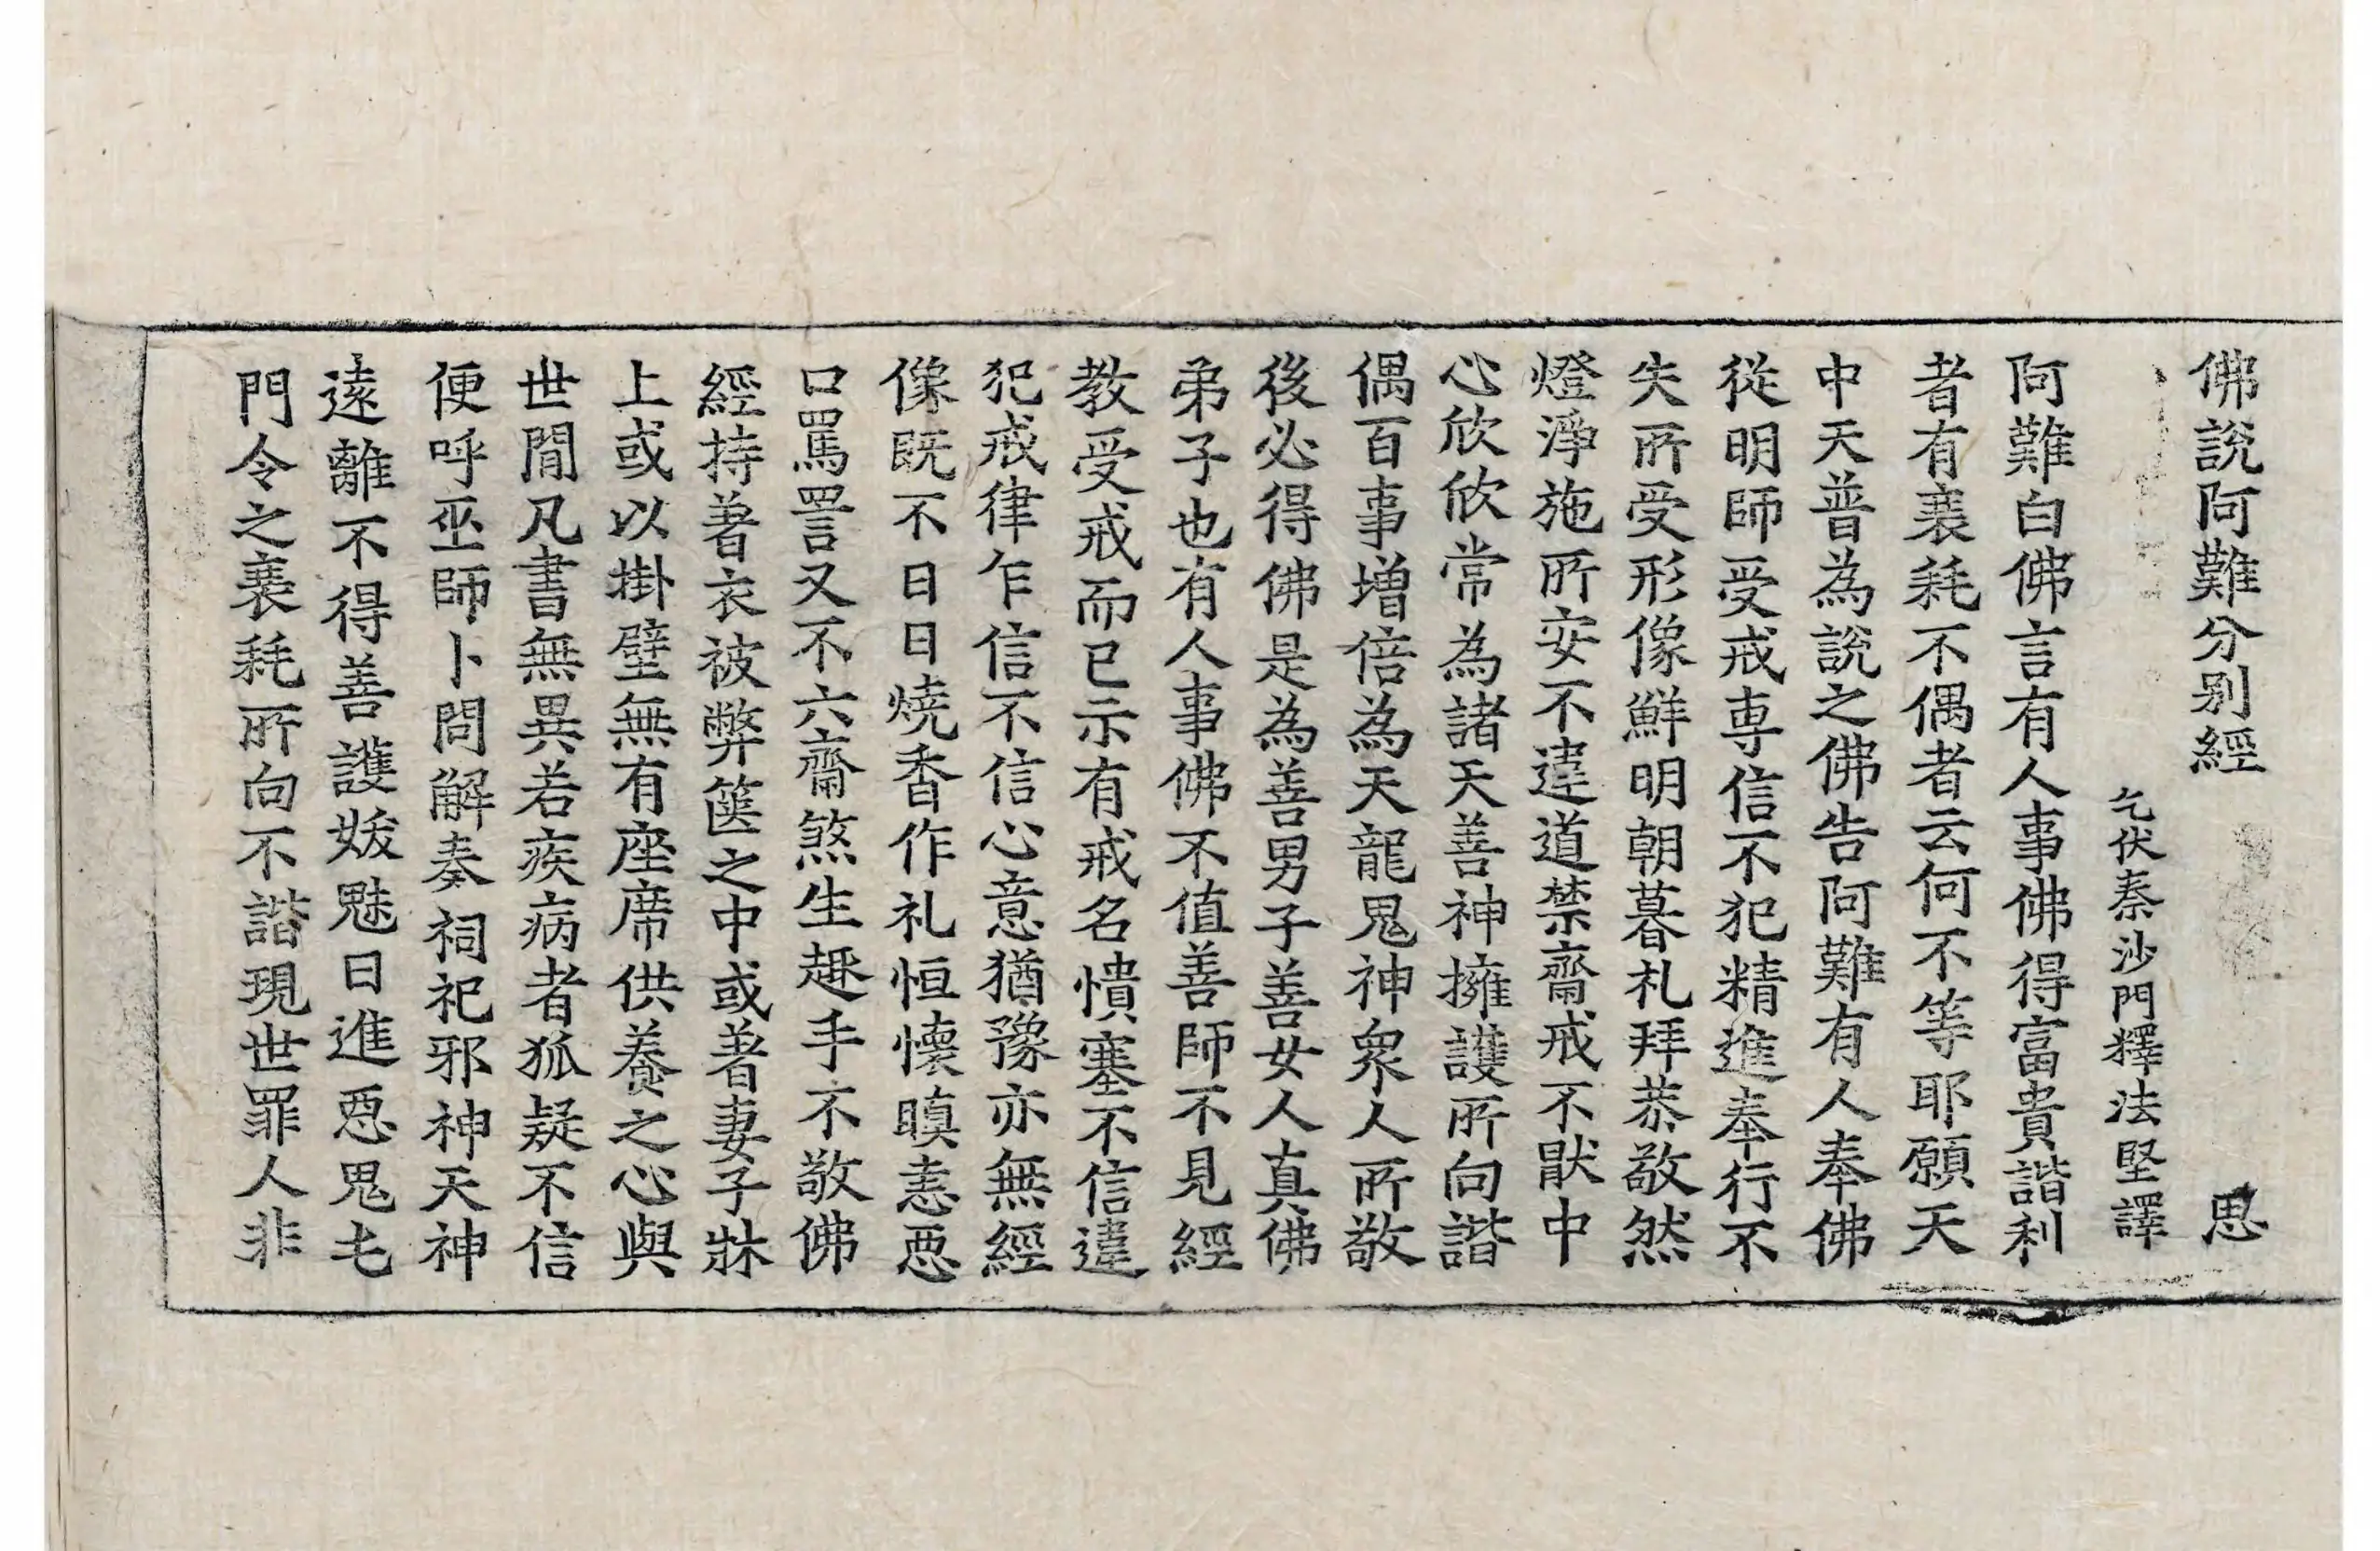 佛說阿難分別經 思
乞伏秦沙門釋法堅譯
阿難白佛言有人事佛得富貴諧利
者有衰耗不偶者云何不等耶願天
中天普為說之佛告阿難有人奉佛
從明師受戒專信不犯精進奉行不
失所受形像鮮明朝暮礼拜恭敬然
燈淨施所安不違道禁齋戒不猒中
心欣欣常為諸天善神擁護所向諧
偶百事增倍為天龍鬼神衆人所敬
後必得佛是為善男子善女人真佛
弟子也有人事佛不值善師不見經
教受戒而已示有戒名憒塞不信違
犯戒律乍信不信心意猶豫亦無經
像既不日日燒香作礼恒懷瞋恚惡
口罵詈又不六齋煞生趣手不敬佛
經持著衣被弊篋之中或著妻子牀
上或以掛壁無有座席供養之心與
世閒凡書無異若疾病者狐疑不信
便呼巫師卜問解奏祠祀邪神天神
遠離不得善護妭魅日進惡鬼屯
門令之衰耗所向不諧現世罪人非